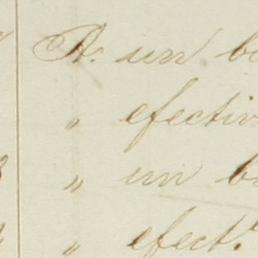 A. un ba
" efectiv
" un ba
" efect.º